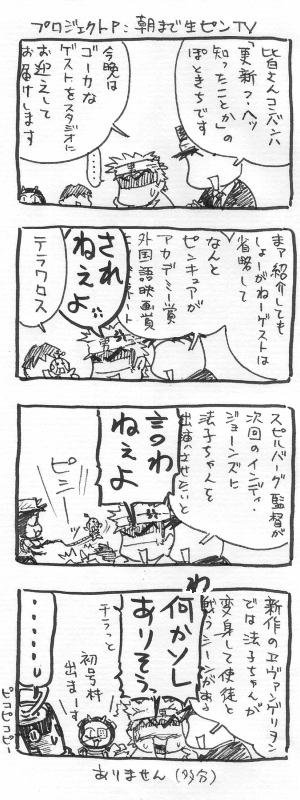 プロジェクトP:朝まで生ピンTV
皆さんコンバンハ
「更新?・ヘッ
知ったことか」の
ぽときちです
今晩は
ゴーカな
ゲストをスタジオに
お迎えして
お届けします
……
まァ紹介しても
しょーがねーゲストは
省略して
なんと
ピンキュアが
アカデミー賞
外国語映画賞
されねぇよ
テラワロス
スピルバーグ監督が
次回のインディ・
ジョーンズに
法子ちゃんを
出演させたいと
言わ
ねぇよ
ピミー
新作のヱヴァンゲリヲン
では法子ちゃんが
変身して使徒と
戦うシーンがある
わ
何かソレ
ありそう
チラっと
初号村
出まーす
……
ピコピコピー
ありません(多分)